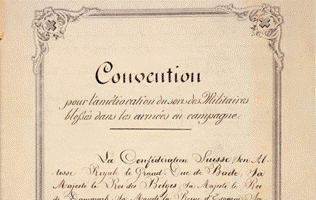 Convention
pour l'amélioration du sort des Militaires
blessés dans les armées en campagne.
La Confédération Suisse Son Al-
tesse Royale le Grand-Duc de Bade, Sa
Majesté le Roi des Belges, Sa Majesté le Roi
de Danemark, Sa Majesté la Reine d'Espagne, Sa